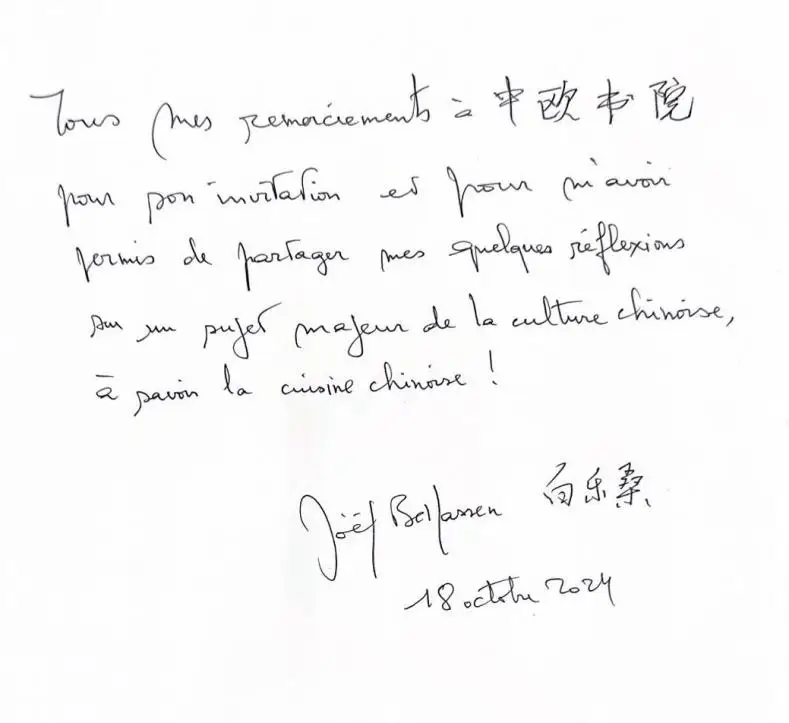 Tous mes remerciements à 中欧书院
pour son invitation et pour m'avoir
permis de partager mes quelques réflexions
sur un sujet majeur de la culture chinoise,
à savoir la cuisine chinoise !
Joël Bellassen 白乐桑
18 octobre 2024